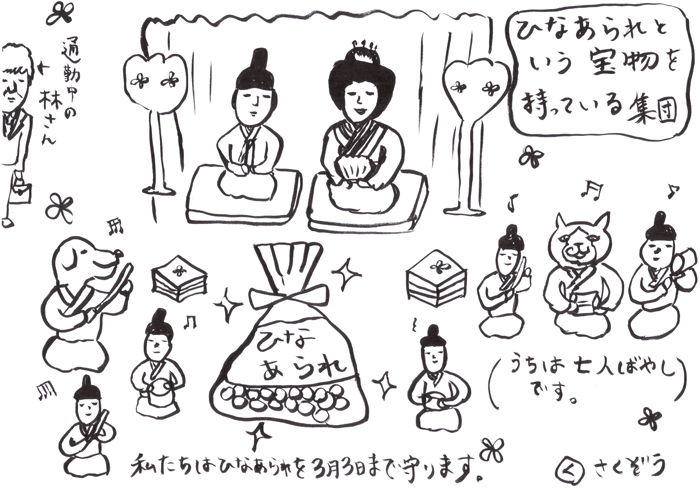 ひなあられと
いう宝物を
持っている集団
通勤中の
林さん
ひな
あられ
(うちは七人ばやし
です。)
私たちはひなあられを3月3日まで守ります。
く さくぞう